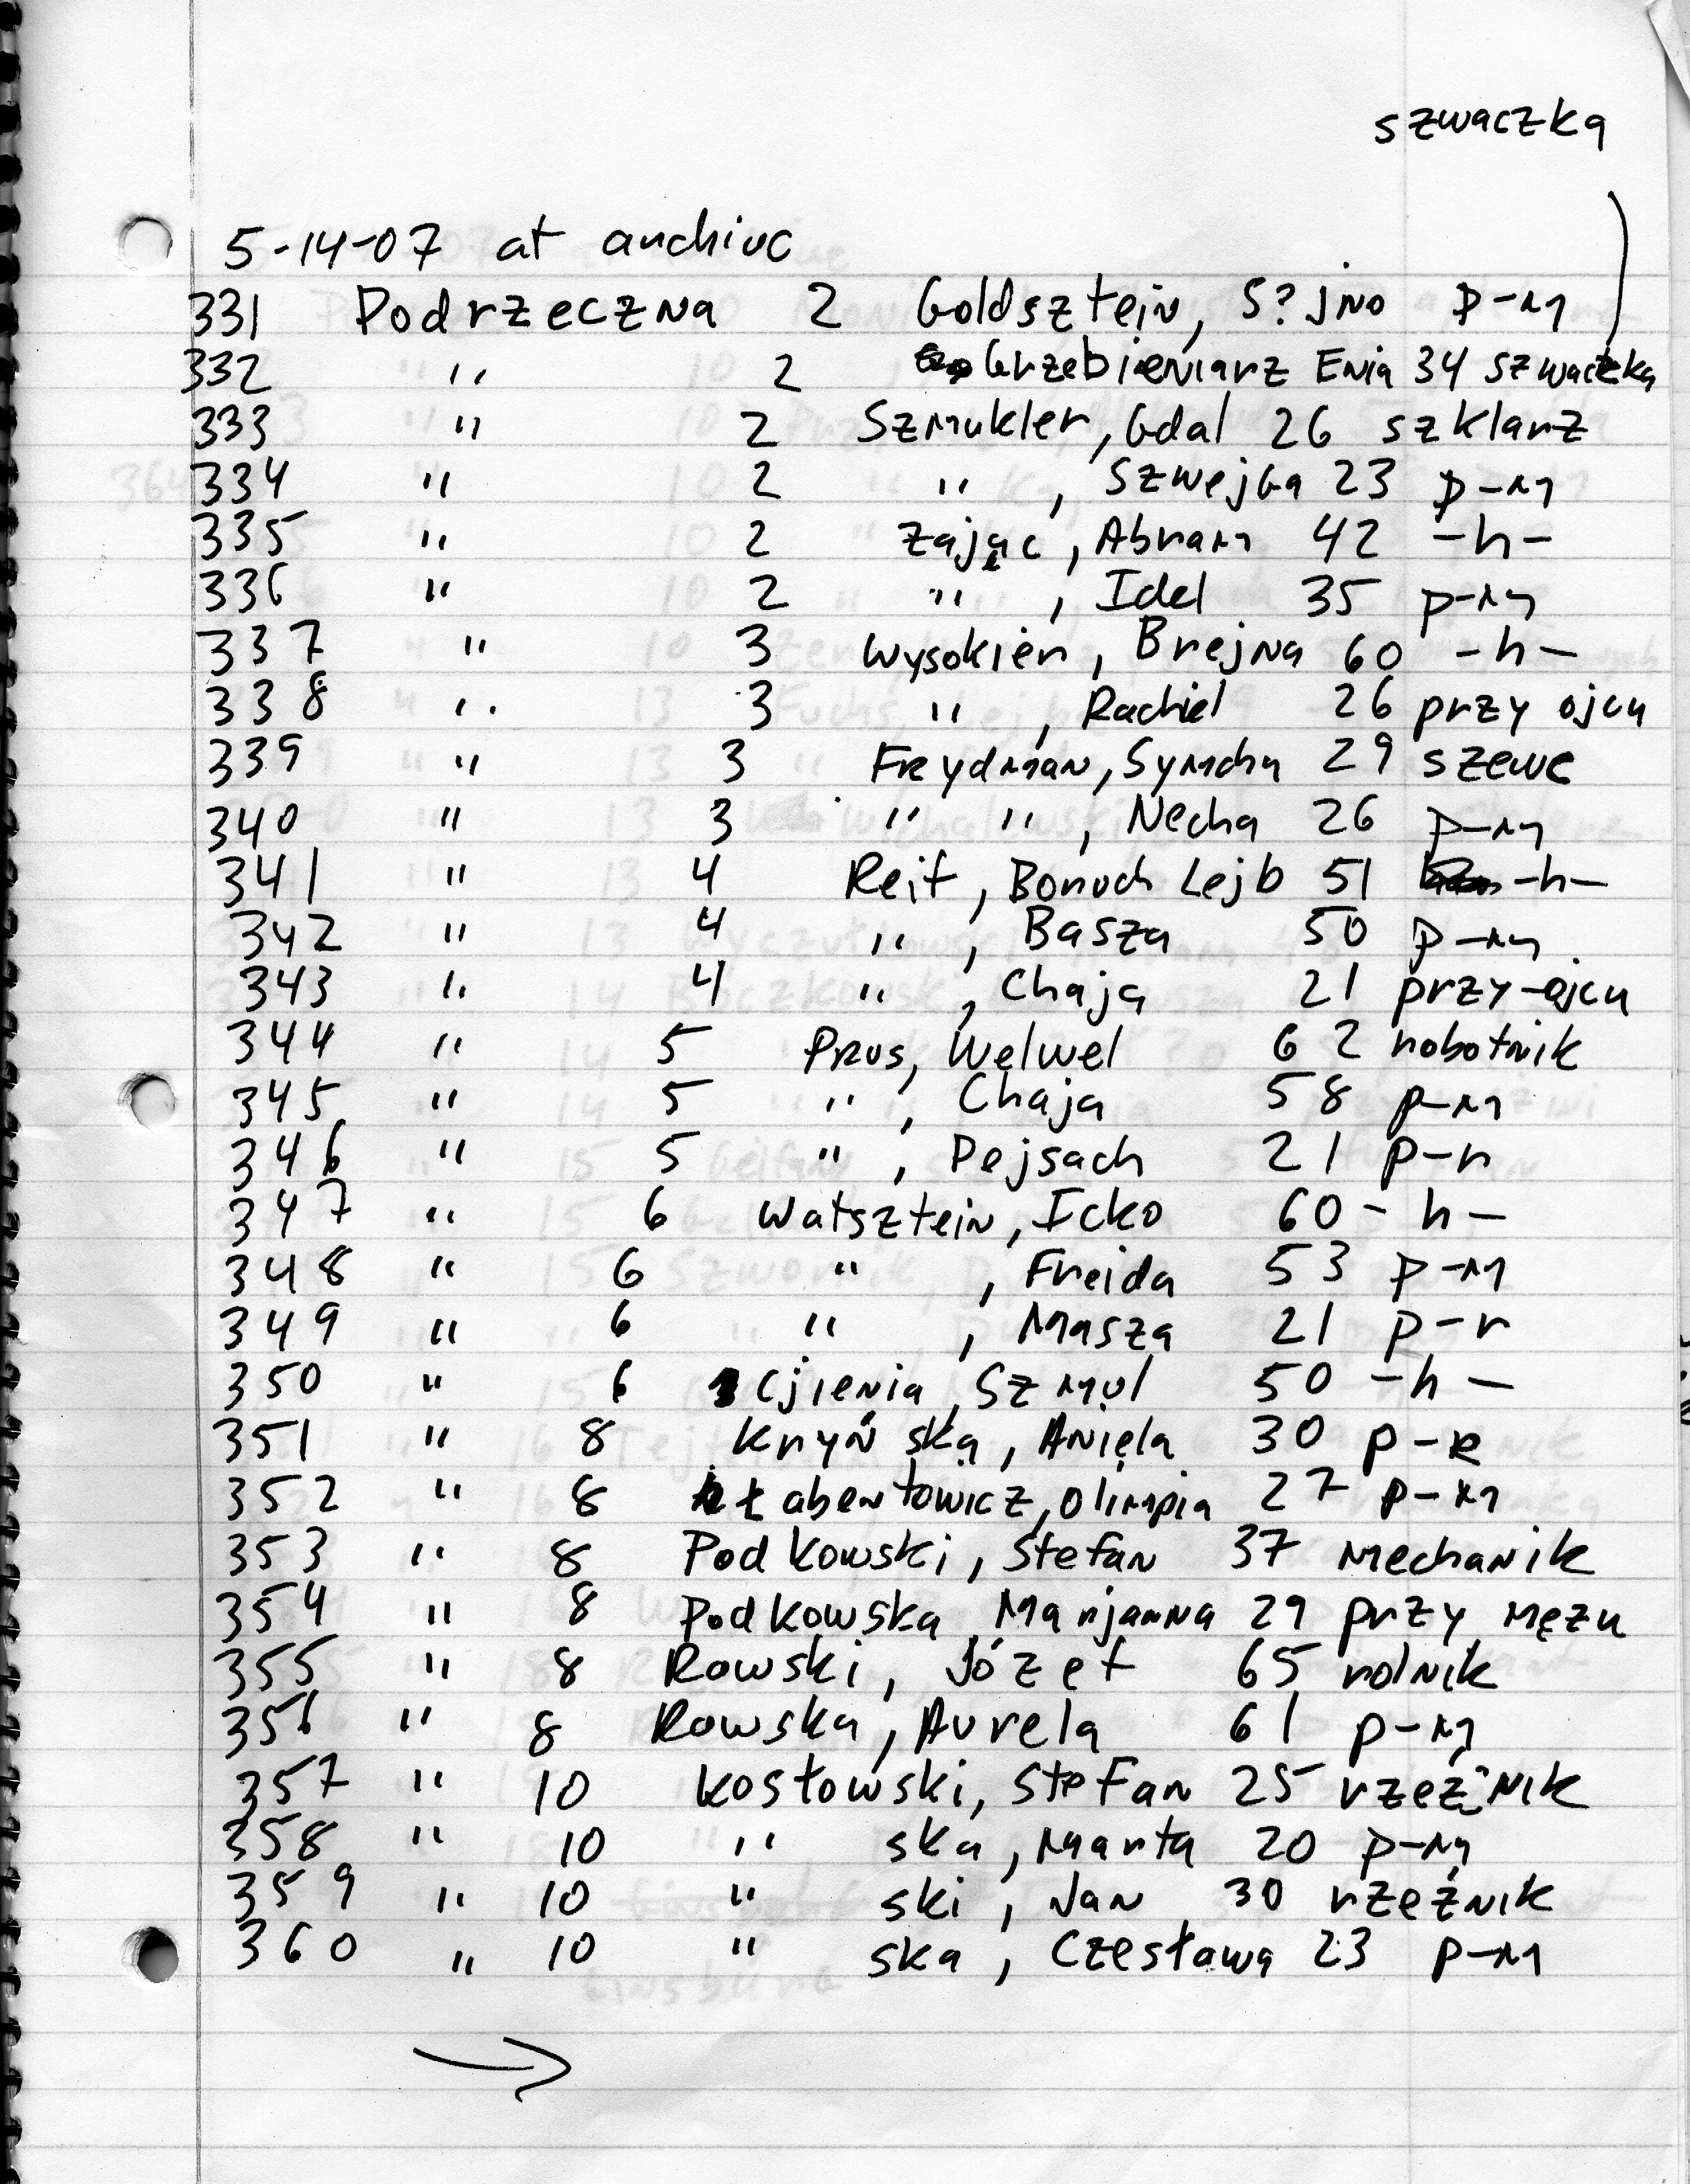 szwaczka
5-14-07 at archive
331 Podrzeczna 2 Goldsztejn, S?jno p-m
332 " 2 Grzebieniarz Enia 34 szwaczka
333 " 2 Szmukler, Gdal 26 szklarz
334 " 2 " , Szwejga 23 p-m
335 " 2 Zając, Abram 42 -h-
336 " 2 " , Idel 35 p-m
337 " 3 Wysokier, Brejna 60 -h-
338 " 3 " , Rachiel 26 przy ojcu
339 " 3 Freydman, Symcha 29 szewc
340 " 3 " " , Necha 26 p-m
341 " 4 Reif, Boruch Lejb 51 -h-
342 " 4 " , Basza 50 p-m
343 " 4 " , Chaja 21 przy-ojcu
344 " 5 Prus, Welwel 62 robotnik
345 " 5 " , Chaja 58 p-m
346 " 5 " , Pejsach 21 p-r
347 " 6 Watsztein, Icko 60 -h-
348 " 6 " , Freida 53 p-m
349 " 6 " , Masza 21 p-r
350 " 6 Cjienia, Szmul 50 -h-
351 " 8 Kryńska, Aniela 30 p-r
352 " 8 Łabentowicz, Olimpia 27 p-m
353 " 8 Podkowski, Stefan 37 mechanik
354 " 8 Podkowska, Marjanna 29 przy męzu
355 " 8 Rowski, Józef 65 rolnik
356 " 8 Rowska, Aurela 61 p-m
357 " 10 Kosłowski, Stefan 25 rzeźnik
358 " 10 " ska, Marta 20 p-m
359 " 10 " ski, Jan 30 rzeźnik
360 " 10 " ska, Czesława 23 p-m